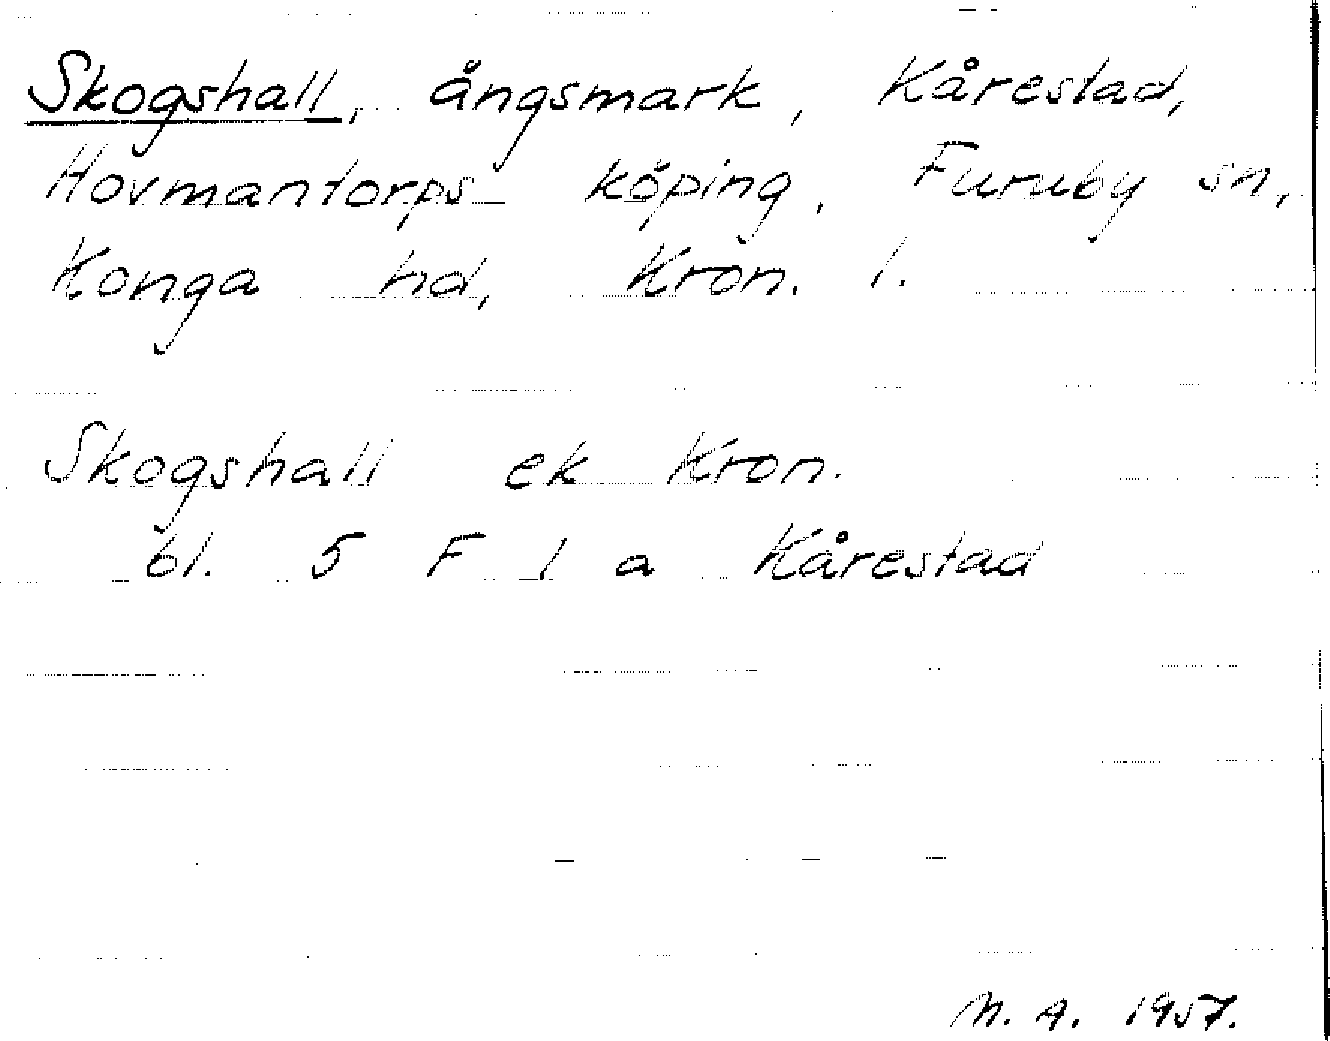 Skogshall, ångsmark, Kårestad,
Hovmantorps köping, Furuby sn,
Konga hd, Kron. l.
Skogshall ek Kron.
bl. 5 F 1 a Kårestad
M. A. 1957.